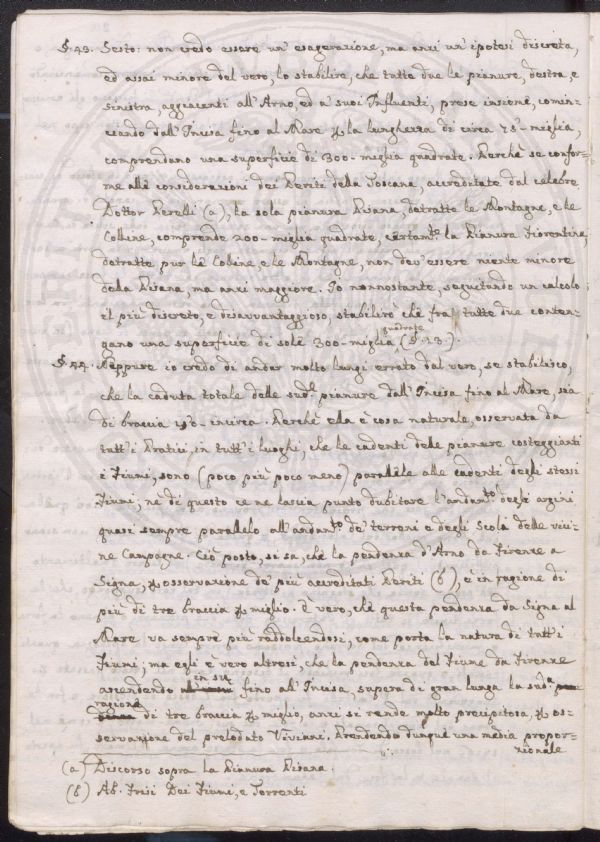 §. 43. Sesto: non credo essere un' esagerazione, ma anzi un' ipotesi discreta,
ed assai minore del vero, lo stabilire, che tutte due le pianure, destra, e
sinistra, aggiacenti all'Arno, ed a' suoi Influenti, prese insieme, comin-
ciando dall'Incisa fino al Mare p la lunghezza di circa 75 - miglia,
comprendano una superficie di 300 - miglia quadrate. Perchè se confor-
me alle considerazioni dei Periti della Toscana, accreditate dal celebre
Dottor Perelli (a), la sola pianura Pisana, detratte le Montagne, e le
Colline, comprende 200 - miglia quadrate, certam.te la Pianura Fiorentina,
detratte pur le Colline, e le Montagne, non dev'essere niente minore
della Pisana, ma anzi maggiore. Io nonnostante, seguitando un calcolo
il più discreto, e disavvantaggioso, stabilirò che fra tutte due conten-
gano una superficie di sole 300 - miglia quadrate (§. 13.).
§. 44. Neppure io credo di andar molto lungi errato dal vero, se stabilisco,
che la caduta totale delle sud.e pianure dall'Incisa fino al Mare, sia
di braccia incirca. Perchè ella è cosa naturale, osservata da
tutt'i Pratici, in tutt'i luoghi, che le cadenti delle pianure costeggianti
i Fiumi, sono (poco più poco meno) parallele alle cadenti degli stessi
Fiumi, nè di questo ce ne lascia punto dubitare l'andam.to degli argini
quasi sempre parallelo all'andam.to de' terreni e degli Scola delle vici-
ne Campagne. Ciò posto, si sa, che la pendenza d'Arno da Firenze a
Signa, p osservazione de' più accreditati Periti (b), è in ragione di
più di tre braccia p miglio. È vero, che questa pendenza da Signa al
Mare va sempre più raddolcendosi, come porta la natura di tutt'i
Fiumi; ma egli è vero altresì, che la pendenza del Fiume da Firenze
ascendendo in sù fino all'Incisa, supera di gran lunga la sud.a
ragione di tre braccia p miglio, anzi si rende molto precipitosa, p os-
servazione del prelodato Viviani. Prendendo dunque una media propor-
zionale
(a) Discorso sopra la Pianura Pisana.
(b) Ab. Frisi Dei Fiumi, e Torrenti